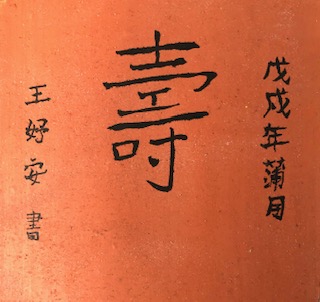 戊戌年蒲月
壽
王妤安書